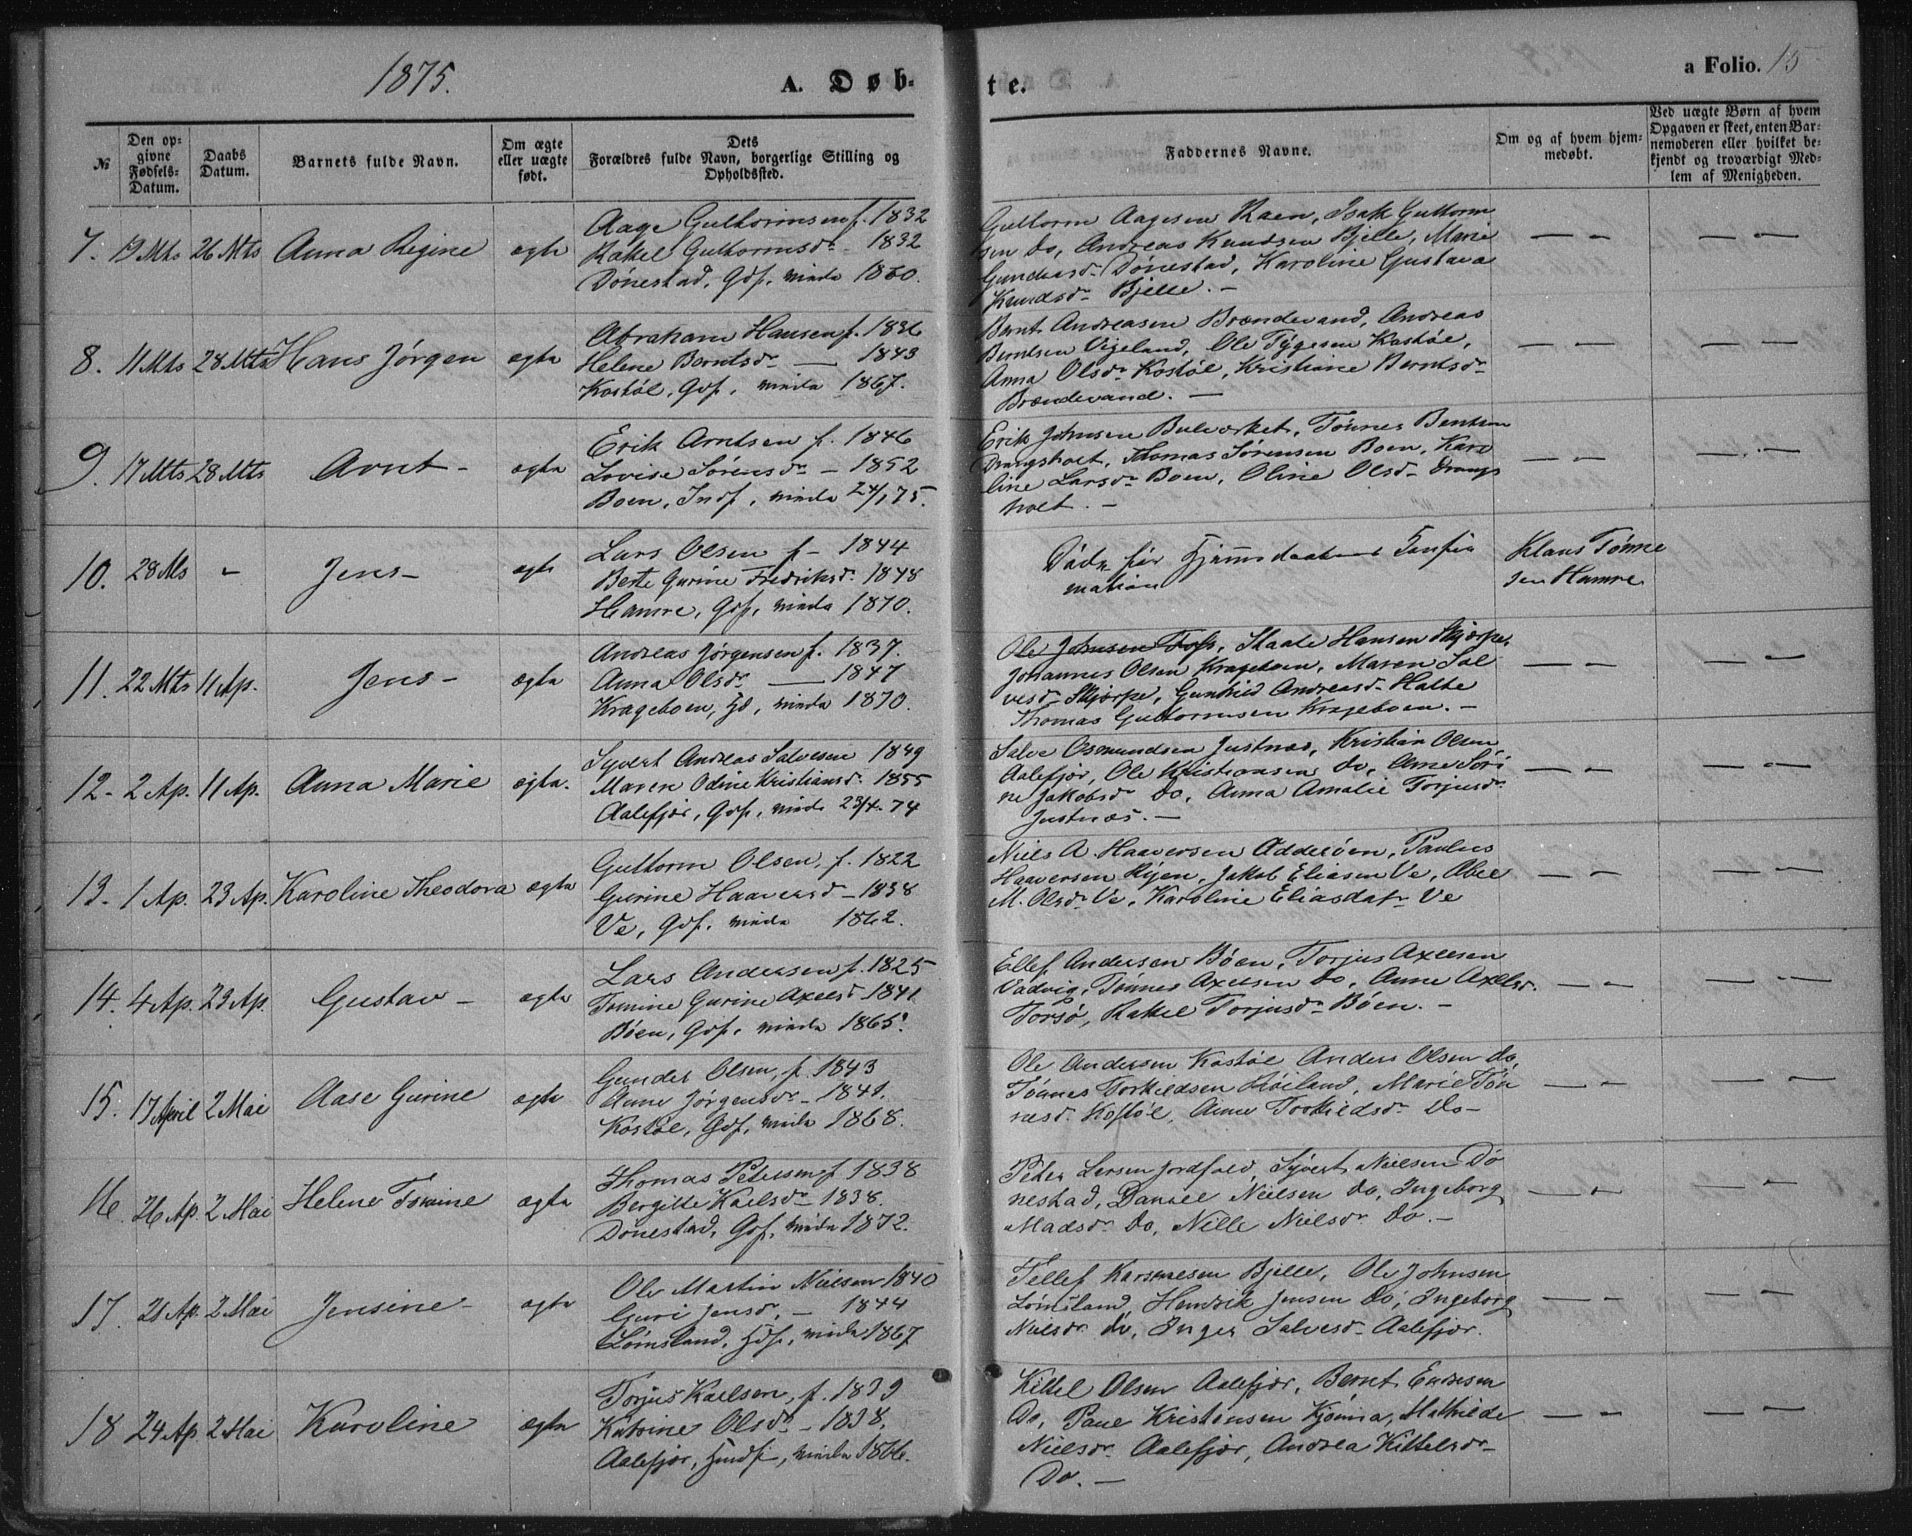 1875.
A. Døb-
te.
a Folio. 15
№
Den op-
givne
Fødsels-
Datum.
Daabs
Datum.
Barnets fulde Navn.
Om ægte
eller uægte
født.
Dets
Forældres fulde Navn, borgerlige Stilling og
Opholdssted.
Faddernes Navne.
Om og af hvem hjem-
medøbt.
Ved uægte Børn af hvem
Opgaven er skeet, enten Bar-
nemoderen eller hvilket be-
kjendt og troværdigt Med-
lem af Menigheden.
7. 19 Mts 26 Mts Anna Regine ægta
Aage Guthormsen f. 1832
Rakel Guthormsdr - 1832
Dønestad, Gdf, vinda 1860.
Guttorm Aagesen Raen, Isak Guttorm
sen do, Andreas Knudsen Bjelle, Marie
Gundersdr Dønestad, Karoline Gustava
Knudsdr Bjelle. -
8. 11 Mts 28 Mts Hans Jørgen ægta
Abraham Hansen f. 1836
Helene Berntsdr — 1843
Kostøl, Gdf, vinda 1867.
Bernt Andreasen Brændevand, Andreas
Berntsen Vigeland, Ole Tygesen Kostøl,
Anna Olsdr Kostøl, Kristiane Berntsdr
Brændevand. -
9. 17 Mts 28 Mts Arnt - ægta
Erik Arntsen f. 1846
Lovise Sørensdr - 1852
Boen, Indf, vinda 24/1 75.
Erik Johnsen Bulværket, Tønnes Bentsen
Drangsholt, Thomas Sørensen Boen, Karo
line Larsdr Boen, Oline Olsdr Drangs
holt. -
10. 28 Ms - Jens - ægta
Lars Olsen f - 1844
Berte Gurine Fredriksdr 1848
Hamre, Gdf, vinda 1870.
Døde før Hjemmedaabens Confir
mation
Klaus Tønne
sen Hamre
11. 22 Mts 11 Ap. Jens - ægta
Andreas Jørgensen f. 1837.
Anna Olsdr — 1847
Krageboen, Gd, vinda 1870.
Ole Johnsen Foss, Staale Hansen Skjærpe,
Johannes Olsen Krageboen, Maren Sal
vesdr Skjærpe, Gunhild Andreasdr Halte
Thomas Guttormsen Krageboen. -
12 - 2 Ap. 11 Ap. Anna Marie ægta.
Syvert Andreas Salvesen 1849
Maren Odine Kristiansdr 1855
Aalefjær, Gdf, vinda 23/4. 74
Salve Osmundsen Justnæs, Kristian Olsen
Aalefjær, Ole Kristiansen do, Ane Sori
ne Jakobsdr do, Anna Amalie Torjusdr
Justnæs. -
13 - 1 Ap. 23 Ap. Karoline Theodora ægta
Guttorm Olsen, f. 1822
Gurine Haaversdr - 1838
Ve, Gdf. vinda 1862.
Niels A. Haaversen Odderøen, Paulus
Haaversen Kjen, Jakob Eliasen Ve, Abel
M. Olsdr Ve, Karoline Eliasdatr Ve
14. 4 Ap. 23 Ap. Gustav - ægta
Lars Andersen f. 1825
Tomine Gurine Axelsdr 1841
Bøen, Gdf, vinda 1865.
Ellef Andersen Bøen, Torjus Axelsen
Vadvig, Tønnes Axelsen do, Anne Axelsdr.
Torsø, Rakel Torjusdr Bøen. -
15. 17 April 2 Mai Aase Gurine ægta
Gunder Olsen, f. 1843
Anne Jørgensdr - 1841.
Kostøl, Gdf, vinda 1868.
Ole Andersen Kostøl Anders Olsen do,
Tønnes Torkildsen Høiland, Marie Tøn
nesdr Kostøl, Anne Torkildsdr Do -
16. 26 Ap. 2 Mai Helene Tomine ægta
Thomas Petersen f 1838
Bergitte Karlsdr - 1838.
Dønestad, Gdf, vinda 1872.
Peter Larsen Jordfald, Syvert Nielsen Dø
nestad, Daniel Nielsen do, Ingeborg
Madsdr do, Nille Nielsdr do. -
17. 21 Ap. 2 Mai Jensine - ægta
Ole Martin Nielsen 1840
Guri Jensdr, - 1844
Lømsland, Hdf, vinda 1867
Tellef Karsmesen Bjelle, Ole Johnsen
Lømsland, Hendrik Jensen do, Ingeborg
Nielsdr do, Inger Salvesdr Aalefjær.
18 24 Ap 2 Mai Karoline ægta
Torjus Karlsen, f. 1839
Katrine Olsdr - 1838,
Aalefjær, Hmdf, vinda 1866.
Kittel Olsen Aalefjær, Bernt Endresen
Do, Paul Kristensen Kjønna, Mathilde
Nielsdr Aalefjær, Andrea Kittelsdr
Do. -